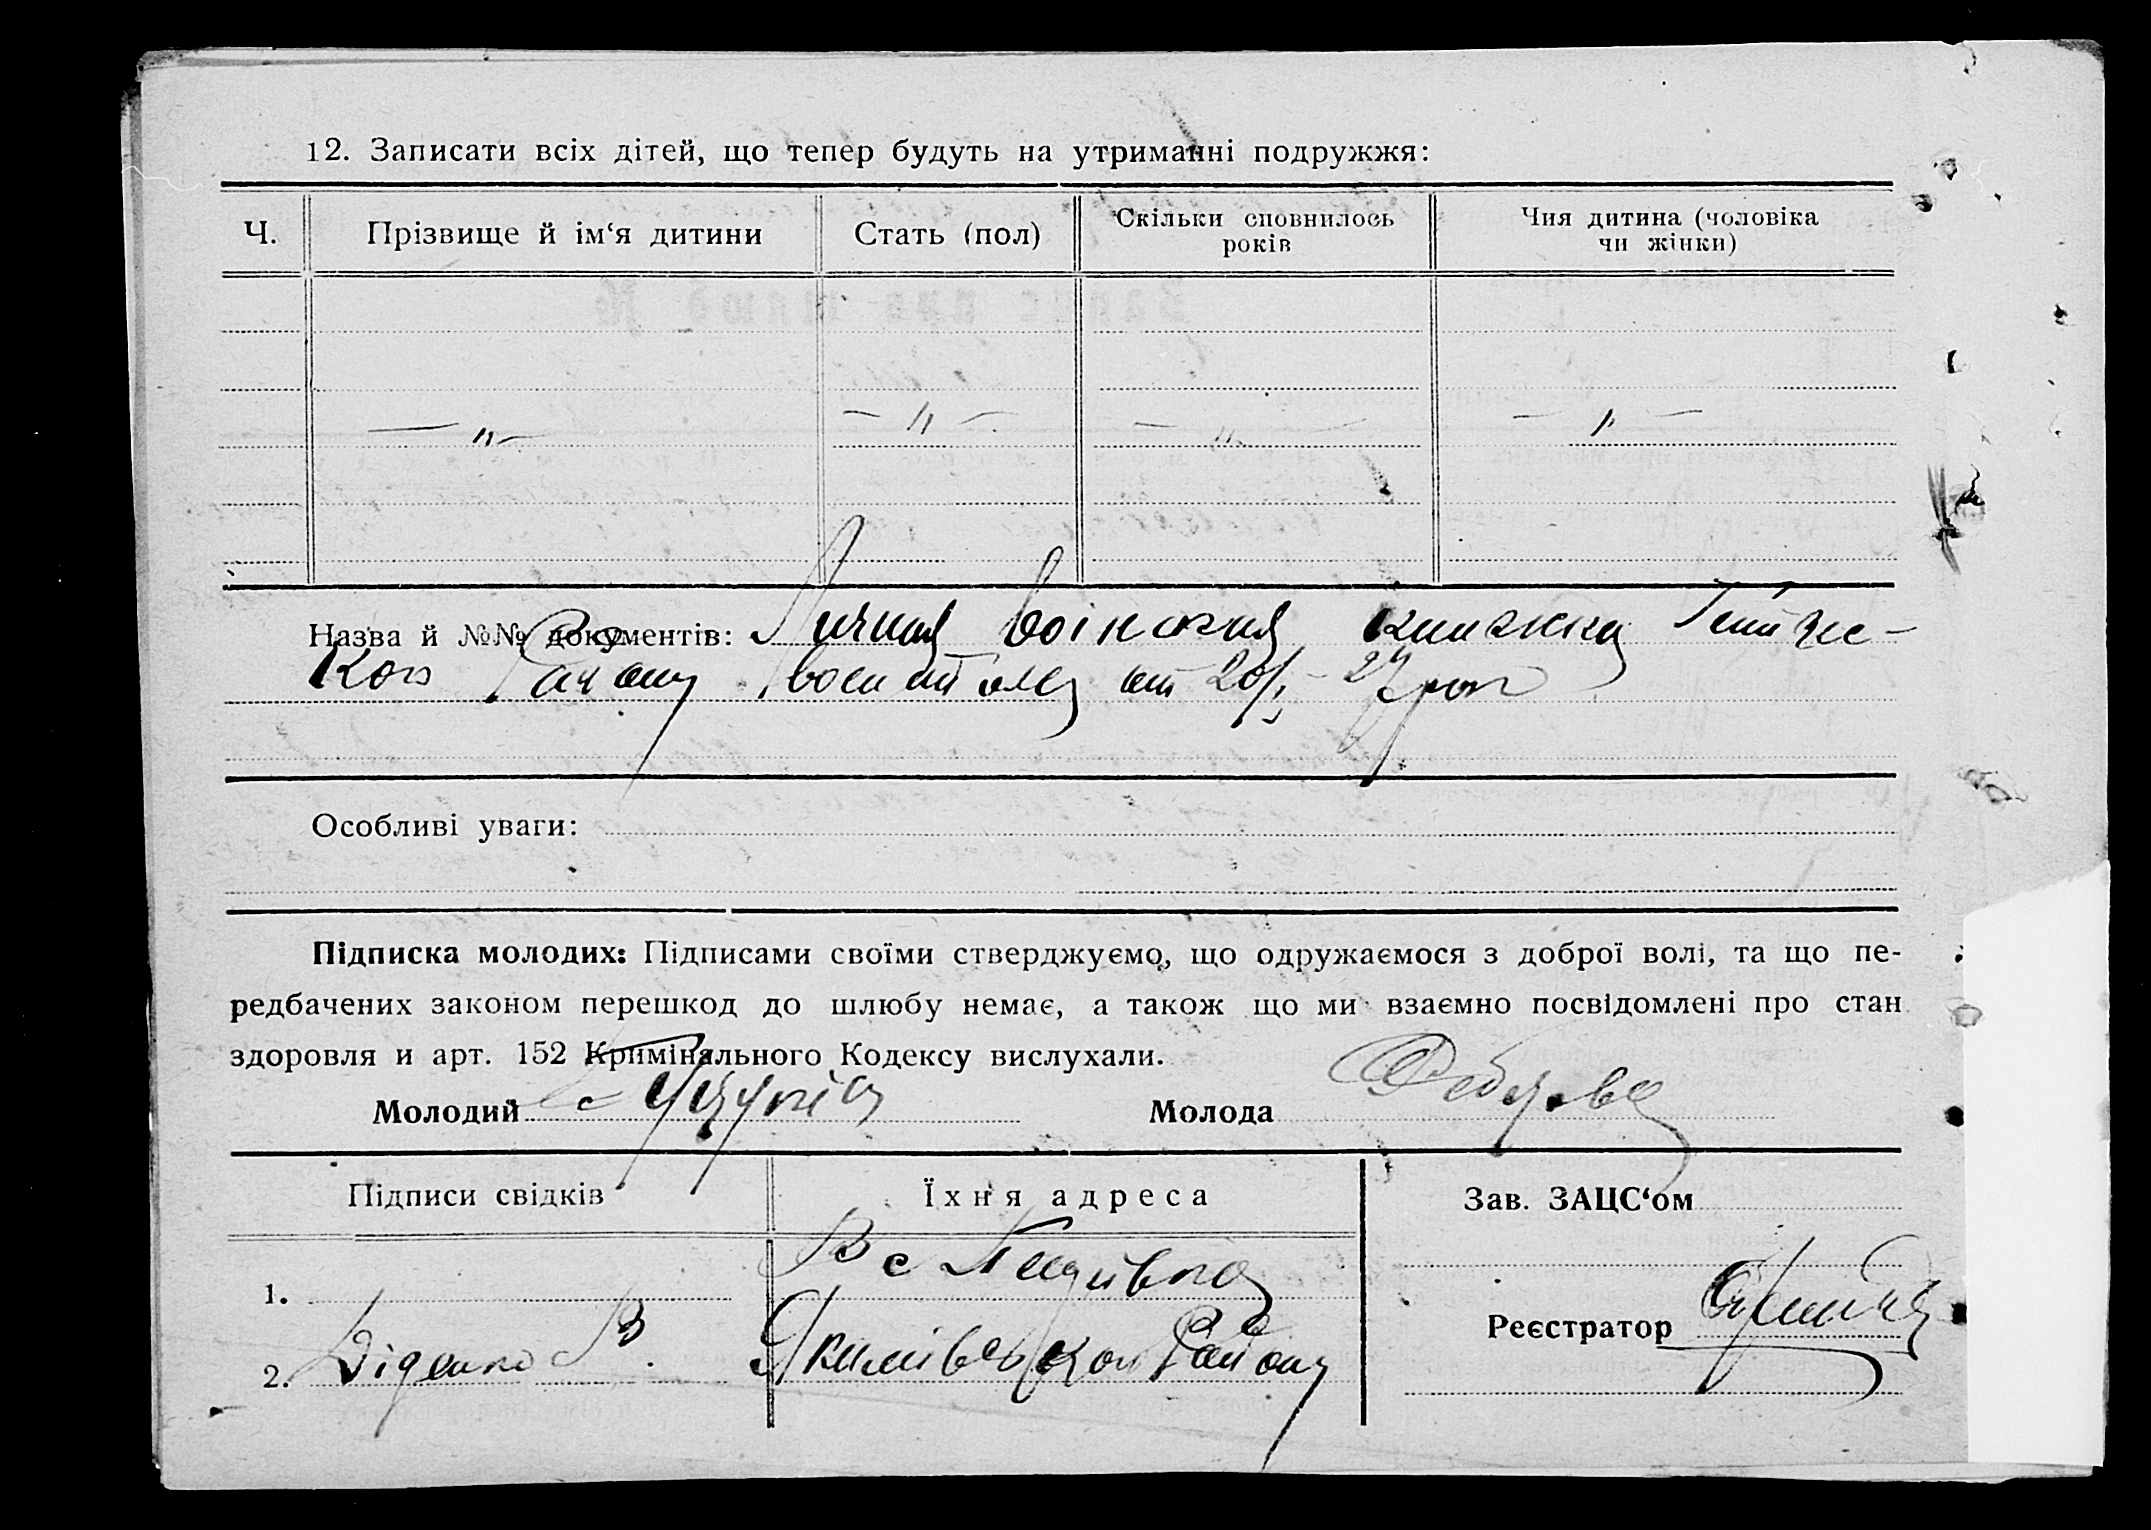 12. Записати всіх дітей, що тепер будуть на утриманні подружжя:
Ч.
Прізвище й ім‘я дитини
Стать (пол)
Скільки сповнилось
років
Чия дитина (чоловіка
чи жінки)
— „ —
— „ —
— „ —
— „ —
Назва й №№ документів: Личная воінская книжка
Району от 20/I - 27 рок
Особливі уваги:
Підписка молодих: Підписами своїми стверджуємо, що одружаємося з доброї волі, та що пе-
редбачених законом перешкод до шлюбу немає, а також що ми взаємно посвідомлені про стан
здоровля и арт. 152 Кримінального Кодексу вислухали.
Молодий
Молода
Підписи свідків
Їхня адреса
Зав. ЗАЦС‘ом
В с
1.
Реєстратор
2. Діденко В. Якимівського Району